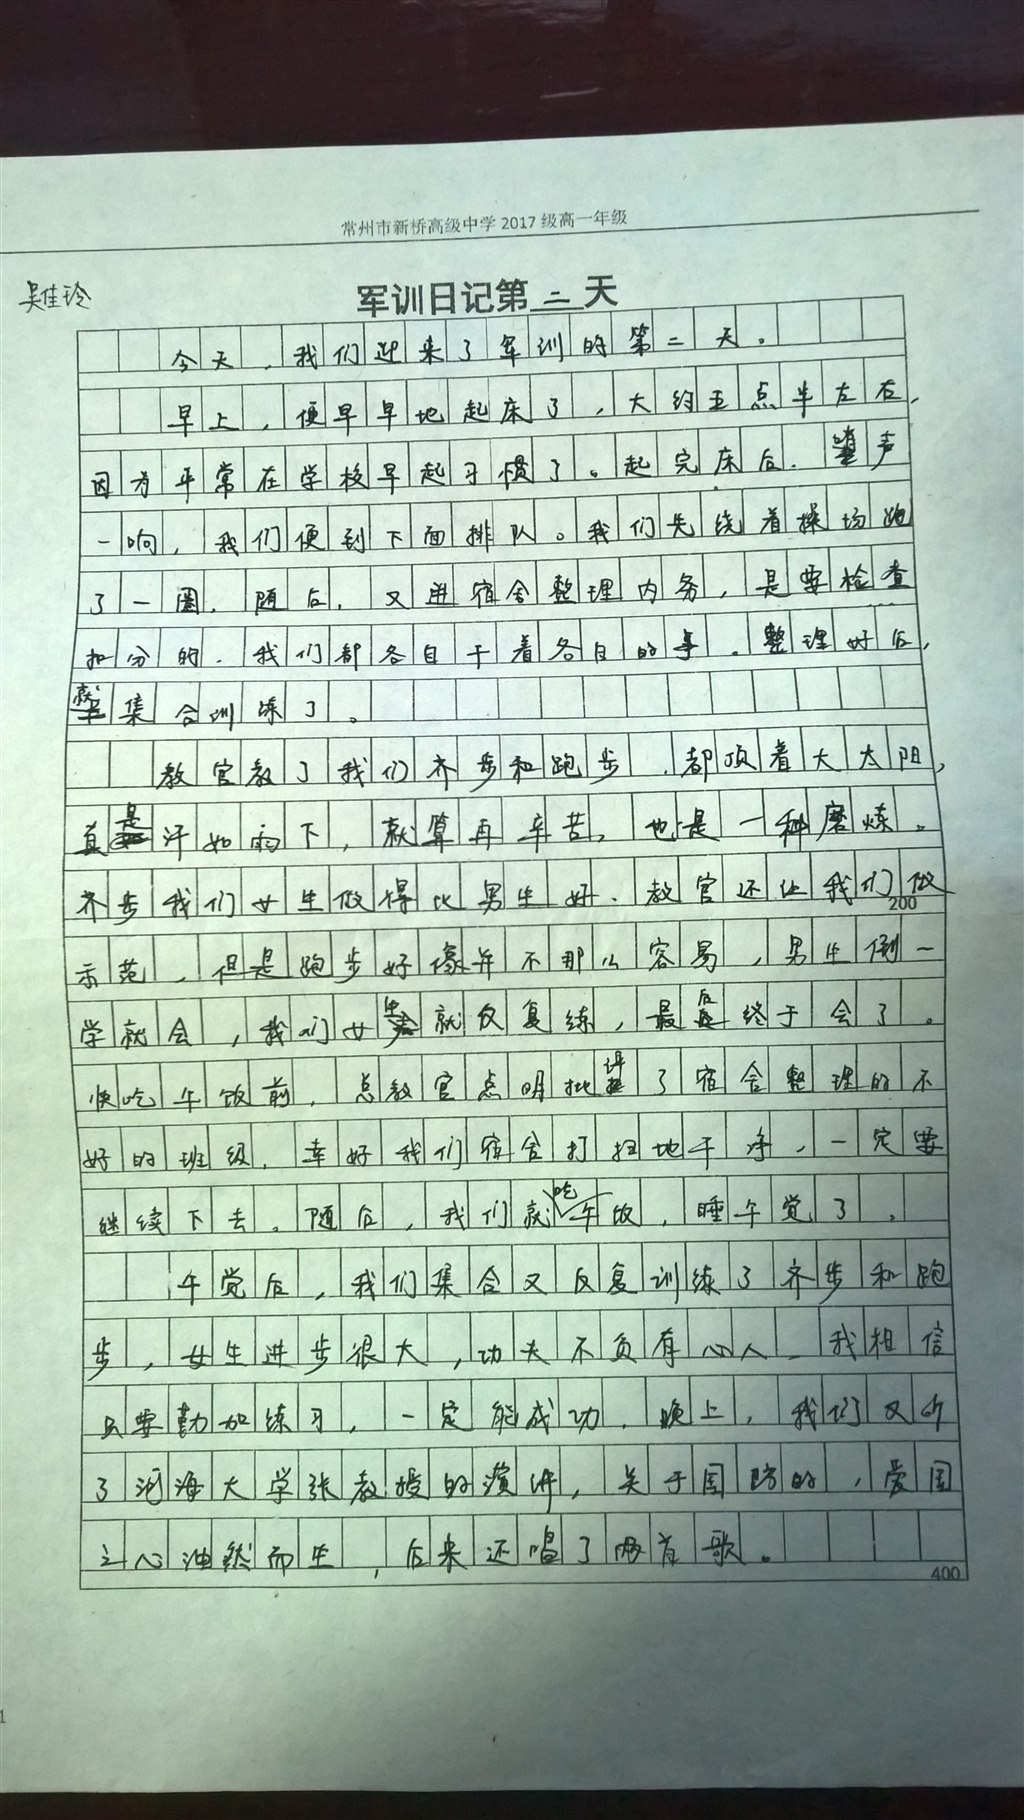 常州市新桥高级中学2017级高一年级
吴佳玲
军训日记第二天
今天，我们迎来了军训的第二天。
早上，便早早地起床了，大约五点半左右，
因为平常在学校早起习惯了。起完床后，哨声
一响，我们便到下面排队。我们先绕着操场跑
了一圈，随后，又进宿舍整理内务，是要检查
扣分的，我们都各自干着各自的事。整理好后，
就集合训练了。
教官教了我们齐步和跑步，都顶着大太阳，
真是汗如雨下，就算再辛苦，也是一种磨炼。
齐步我们女生做得比男生好，教官还让我们做
200
示范，但是跑步好像并不那么容易，男生倒一
学就会，我们女生就反复练，最后终于会了。
快吃午饭前，总教官点明批评了宿舍整理的不
好的班级，幸好我们宿舍打扫地干净，一定要
继续下去。随后，我们就吃午饭，睡午觉了。
午觉后，我们集合又反复训练了齐步和跑
步，女生进步很大，功夫不负有心人，我相信
只要勤加练习，一定能成功，晚上，我们又听
了河海大学张教授的演讲，关于国防的，爱国
之心油然而生，后来还唱了两首歌。
400
1